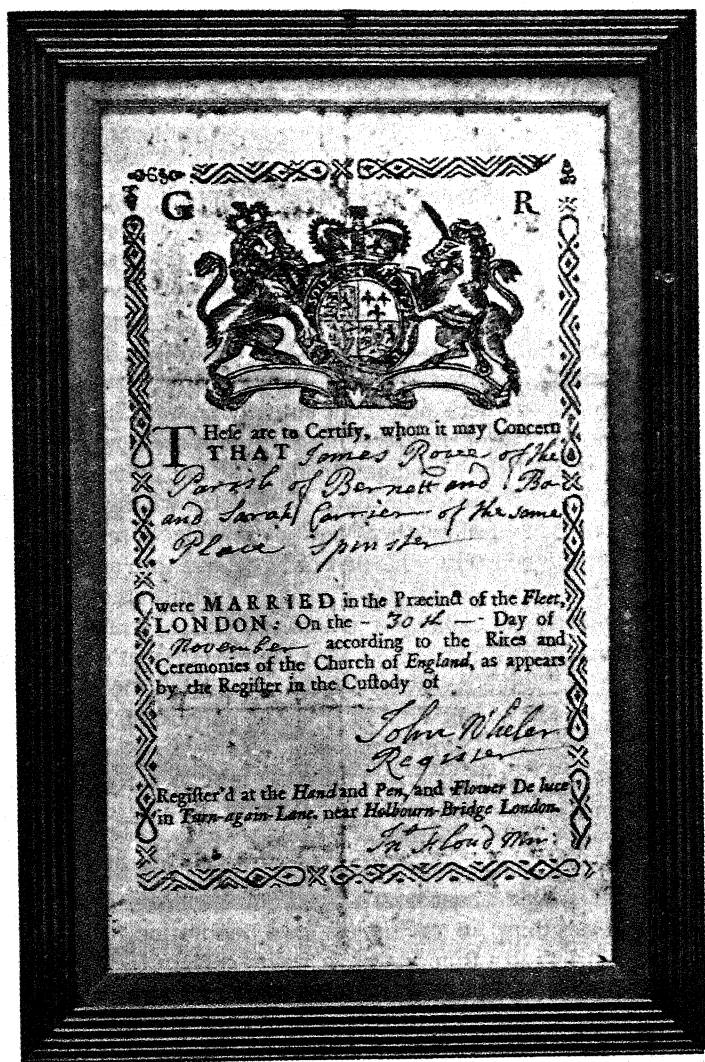 G R
THese are to Certify, whom it may Concern
THAT James Rowe of the
Parish of Bernett and Ba
and Sarah Carrier of the same
Place Spinster
were MARRIED in the Præcinct of the Fleet,
LONDON: On the - 30th - Day of
November according to the Rites and
Ceremonies of the Church of England, as appears
by the Register in the Custody of
John Wheler
Register
Register'd at the Hand and Pen, and Flower De luce
in Turn-again-Lane. near Holbourn-Bridge London.
Jno Floud Min: